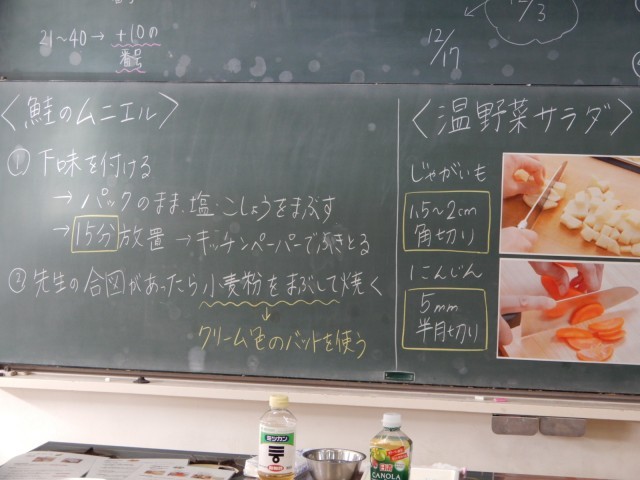 21~40→+10の
番号
12/3
12/17
〈鮭のムニエル〉
① 下味を付ける
→ パックのまま、塩・こしょうをまぶす
→ 15分放置 → キッチンペーパーでふきとる
② 先生の合図があったら小麦粉をまぶして焼く
↓
クリーム色のバットを使う
〈温野菜サラダ〉
じゃがいも
1.5~2cm
角切り
にんじん
5mm
半月切り
ミツカン
CANOLA